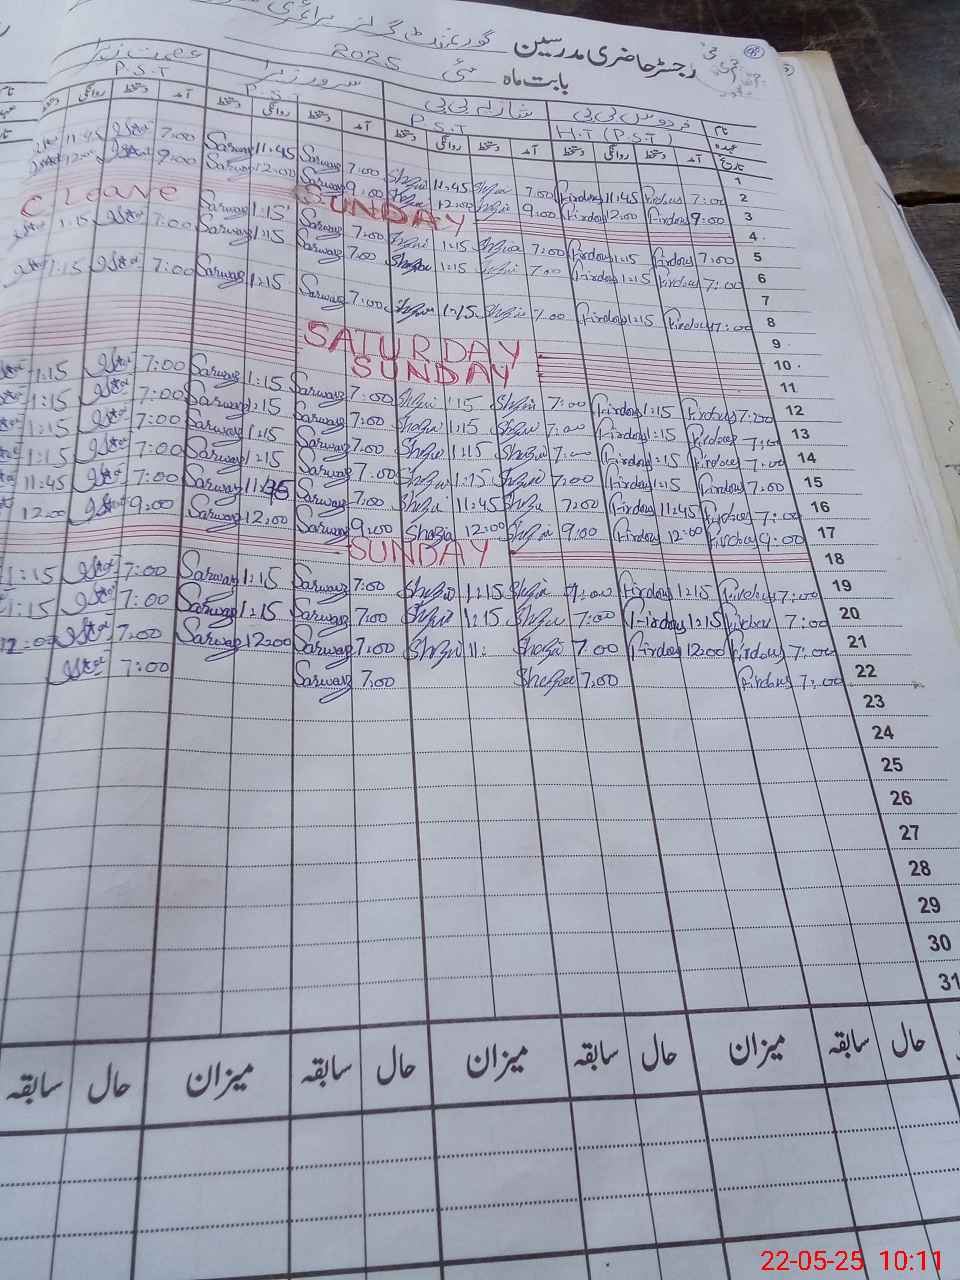 رجسٹر حاضری مدرسین گورنمنٹ گرلز پرائمری
بابت ماہ مئی 2025
نام فردوس بی بی شازیہ بی بی سرور زہرا عصمت زہرا
عہدہ H.T (P.S.T) P.S.T P.S.T P.S.T
تاریخ آمد دستخط روانگی دستخط آمد دستخط روانگی دستخط آمد دستخط روانگی دستخط آمد دستخط روانگی دستخط
1
7:00 11:45 Sarwar 11:45 Sarwar 7:00 Shazia 11:45 Shazia 7:00 Firdous 11:45 Firdous 7:00 2
12:00 9:00 Sarwar 12:00 Sarwar 9:00 Shazia 12:00 Shazia 9:00 Firdous 12:00 Firdous 9:00 3
SUNDAY 4
C Leave Sarwar 1:15 Sarwar 7:00 Shazia 1:15 Shazia 7:00 Firdous 1:15 Firdous 7:00 5
1:15 7:00 Sarwar 1:15 Sarwar 7:00 Shazia 1:15 Shazia 7:00 Firdous 1:15 Firdous 7:00 6
7
1:15 7:00 Sarwar 1:15 Sarwar 7:00 Shazia 1:15 Shazia 7:00 Firdous 1:15 Firdous 7:00 8
9
SATURDAY 10
SUNDAY 11
1:15 7:00 Sarwar 1:15 Sarwar 7:00 Shazia 1:15 Shazia 7:00 Firdous 1:15 Firdous 7:00 12
1:15 7:00 Sarwar 1:15 Sarwar 7:00 Shazia 1:15 Shazia 7:00 Firdous 1:15 Firdous 7:00 13
1:15 7:00 Sarwar 1:15 Sarwar 7:00 Shazia 1:15 Shazia 7:00 Firdous 1:15 Firdous 7:00 14
1:15 7:00 Sarwar 1:15 Sarwar 7:00 Shazia 1:15 Shazia 7:00 Firdous 1:15 Firdous 7:00 15
11:45 7:00 Sarwar 11:45 Sarwar 7:00 Shazia 11:45 Shazia 7:00 Firdous 11:45 Firdous 7:00 16
12:00 9:00 Sarwar 12:00 Sarwar 9:00 Shazia 12:00 Shazia 9:00 Firdous 12:00 Firdous 9:00 17
SUNDAY 18
1:15 7:00 Sarwar 1:15 Sarwar 7:00 Shazia 1:15 Shazia 7:00 Firdous 1:15 Firdous 7:00 19
1:15 7:00 Sarwar 1:15 Sarwar 7:00 Shazia 1:15 Shazia 7:00 Firdous 1:15 Firdous 7:00 20
12:00 7:00 Sarwar 12:00 Sarwar 7:00 Shazia 11: Shazia 7:00 Firdous 12:00 Firdous 7:00 21
7:00 Sarwar 7:00 Shazia 7:00 Firdous 7:00 22
23
24
25
26
27
28
29
30
31
حال سابقہ میزان حال سابقہ میزان حال سابقہ میزان حال سابقہ
22-05-25 10:11